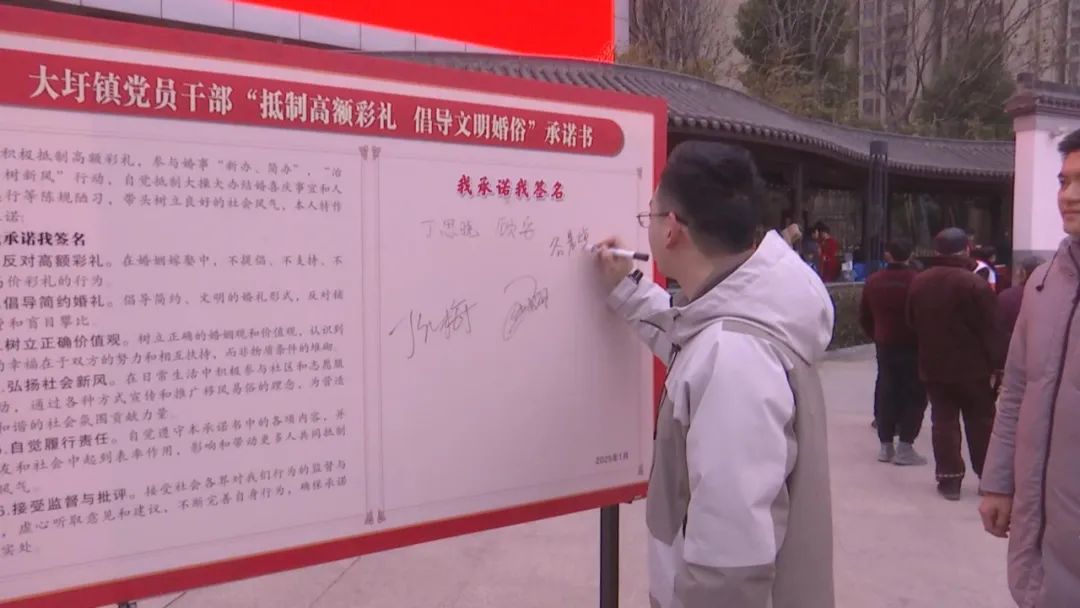 大圩镇党员干部“抵制高额彩礼 倡导文明婚俗”承诺书
积极抵制高额彩礼，参与婚事“新办、简办”，“治
树新风”行动，自觉抵制大操大办结婚喜庆事宜和人
行等陈规陋习，带头树立良好的社会风气，本人特作
诺：
承诺我签名
反对高额彩礼。在婚姻嫁娶中，不提倡、不支持、不
高价彩礼的行为。
倡导简约婚礼。倡导简约、文明的婚礼形式，反对铺
和盲目攀比。
树立正确价值观。树立正确的婚姻观和价值观，认识到
幸福在于双方的努力和相互扶持，而非物质条件的堆砌。
弘扬社会新风。在日常生活中积极参与社区和志愿服
动，通过各种方式宣传和推广移风易俗的理念，为营造
和谐的社会氛围贡献力量。
自觉履行责任。自觉遵守本承诺书中的各项内容，并
友和社会中起到表率作用，影响和带动更多人共同抵制
风气。
6.接受监督与批评。接受社会各界对我们行为的监督与
，虚心听取意见和建议，不断完善自身行为，确保承诺
实处。
我承诺我签名
丁思晓
2025年1月